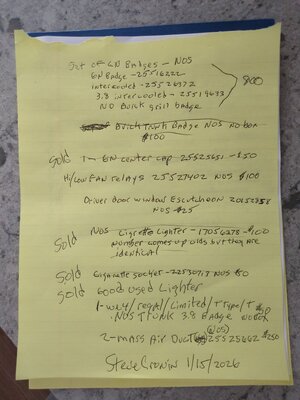 Set of GN Badges - NOS
GN Badge - 25516222
Intercooled - 25526372
3.8 intercooled - 25519633
NO Buick grill badge
$800
Buick Trunk Badge NOS NO box
$100
Sold 1- GN center cap 25525651 - $50
Hi/Low Fan relays 25527402 NOS $100
Driver door window Escutcheon 20152358
NOS $25
Sold NOS Cigrette Lighter - 17056378 - $100
Number comes up olds but they are
identical
Sold Cigarette socket - 22530713 NOS $50
Sold Good Used Lighter
1-WE4/regal/Limited/T Type/T $50
NOS Trunk 3.8 Badge No Box
(NOS)
2-mass Air Duct 25525662 $250
Steve Cronin 1/15/2026